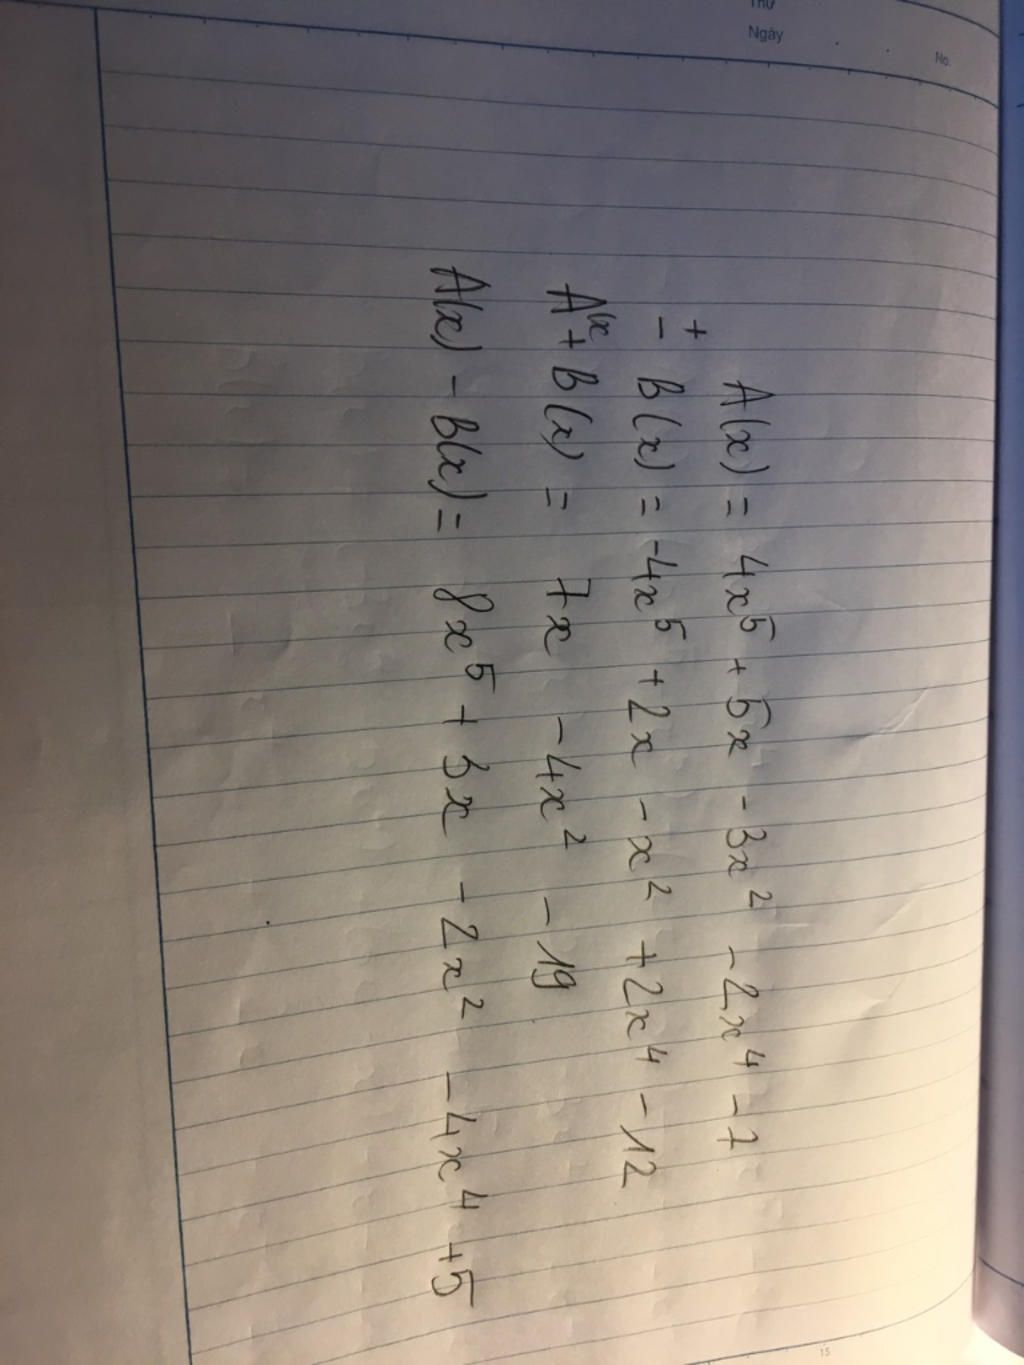 Thứ
Ngày
No.
A(x) = 4x⁵ + 5x - 3x² - 2x⁴ - 7
+
- B(x) = -4x⁵ + 2x - x² + 2x⁴ - 12
A(x + B(x) = 7x - 4x² - 19
A(x) - B(x) = 8x⁵ + 3x - 2x² - 4x⁴ + 5
15